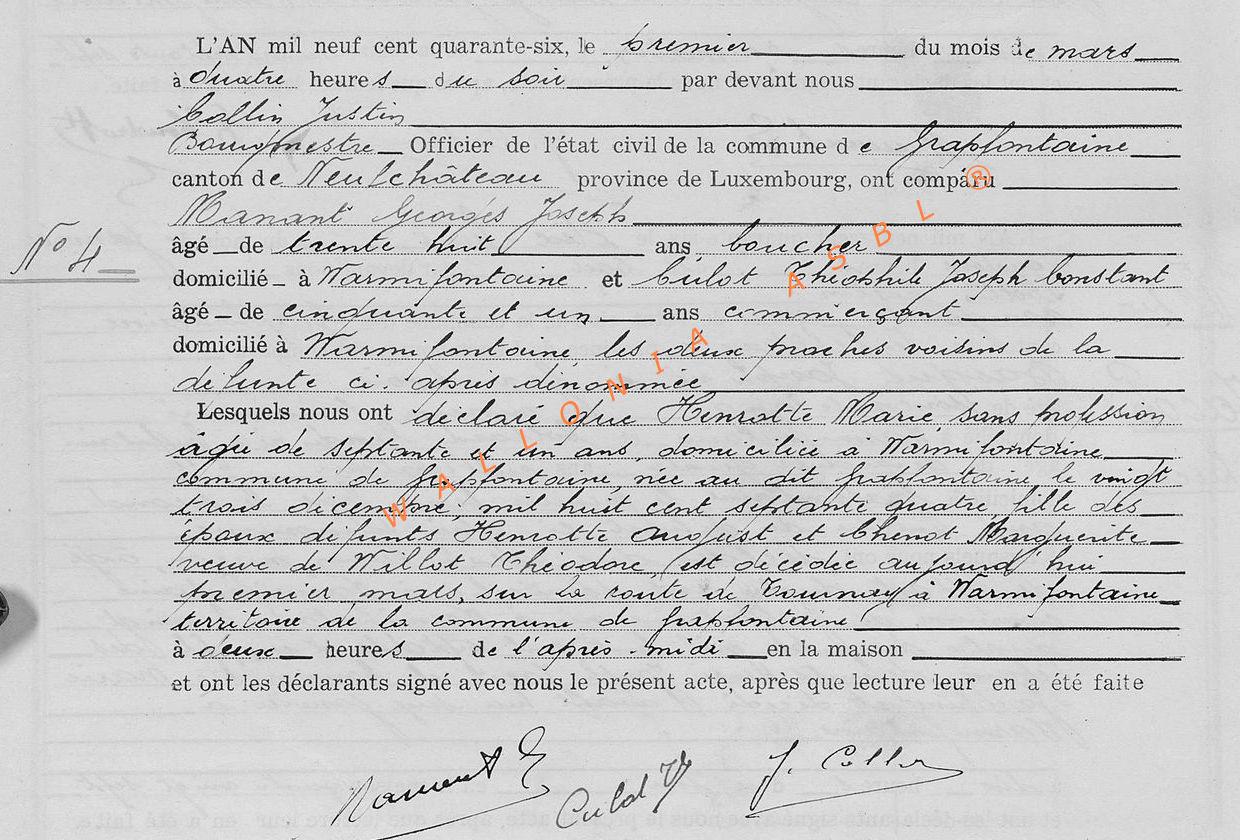 L'AN mil neuf cent quarante-six, le premier du mois de mars
à quatre heures du soir par devant nous
Collin Justin
Bourgmestre Officier de l'état civil de la commune de Grapfontaine
canton de Neufchâteau province de Luxembourg, ont comparu
Manant Georges Joseph
N° 4
âgé de trente huit ans boucher
domicilié à Warmifontaine et Culot Théophile Joseph Constant
âgé de cinquante et un ans commerçant
domicilié à Warmifontaine les deux proches voisins de la
défunte ci-après dénommée
Lesquels nous ont déclaré que Henrotte Marie, sans profession
âgée de septante et un ans, domiciliée à Warmifontaine
commune de Grapfontaine, née au dit Grapfontaine, le vingt
trois décembre, mil huit cent septante quatre, fille des
époux défunts Henrotte August et Chenot Marguerite
veuve de Willot Théodore, est décédée aujourd'hui
premier mars, sur la route de Tournay à Warmifontaine
territoire de la commune de Grapfontaine
à deux heures de l'après-midi en la maison
et ont les déclarants signé avec nous le présent acte, après que lecture leur en a été faite
Manant G Culot Th J. Collin
WALLONIA ASBL ®